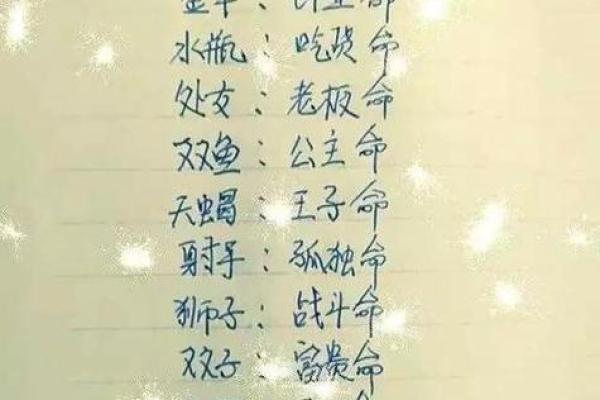 金牛：业命
水瓶：吃货命
处女：老板命
双鱼：公主命
天蝎：王子命
射手：孤独命
狮子：战斗命
双子：富贵命